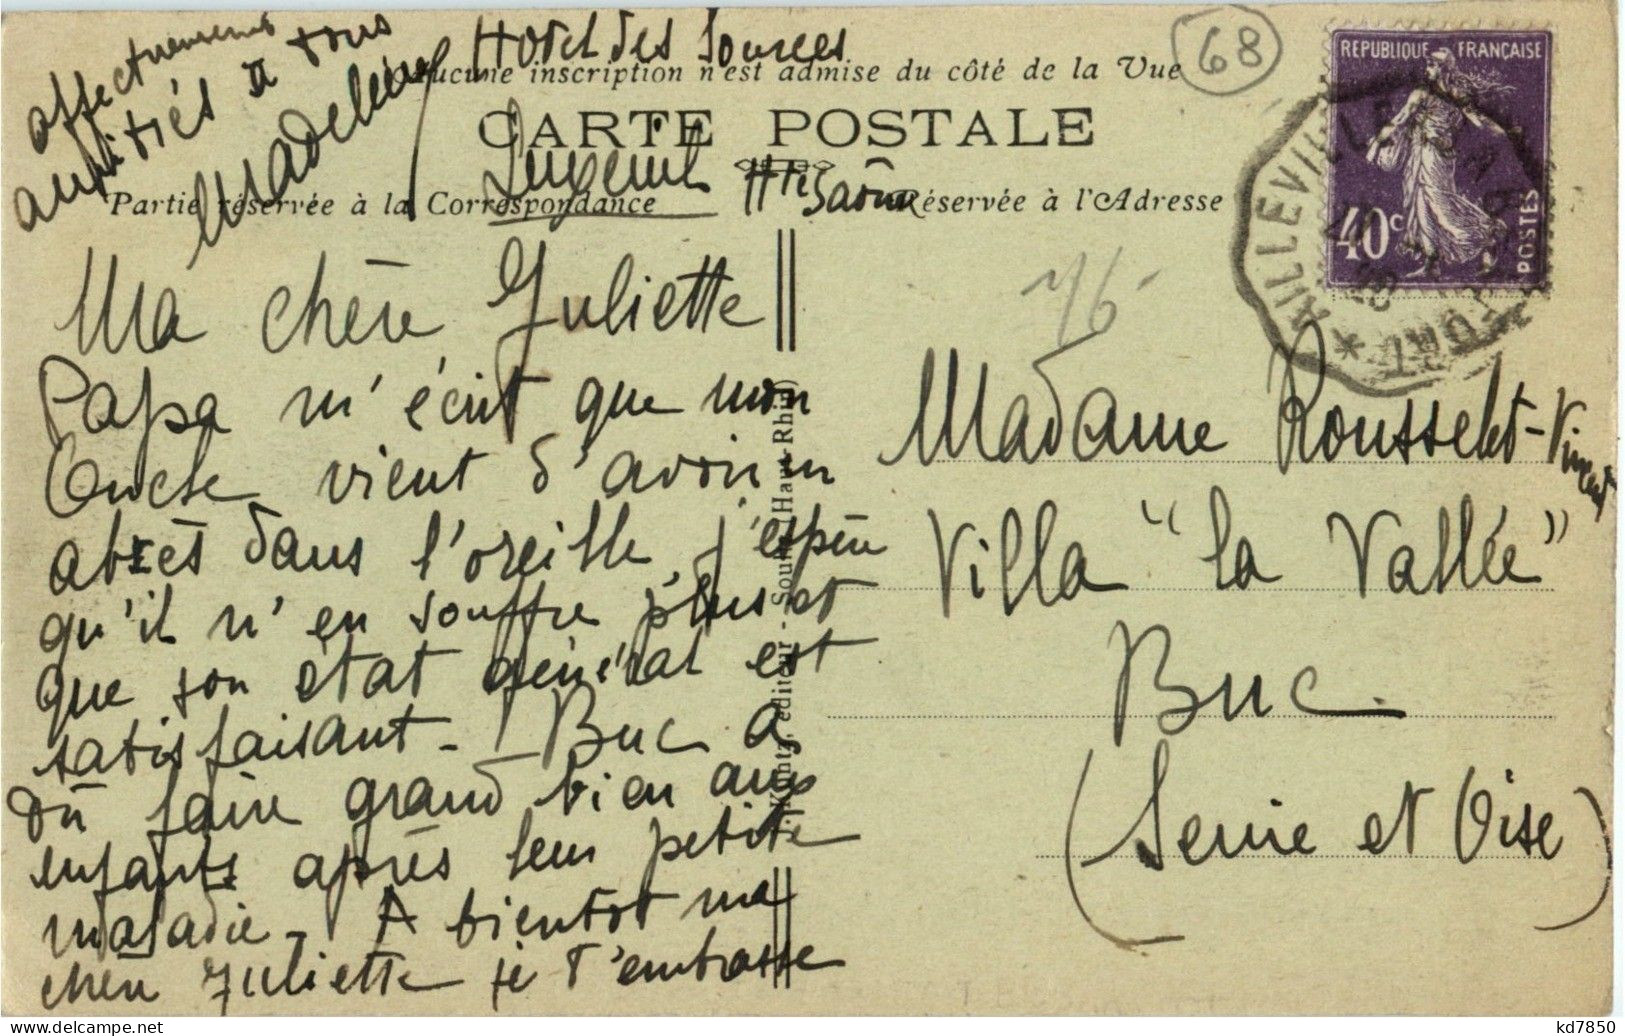 Hotel des Sources
Aucune inscription n'est admise du côté de la Vue
68
CARTE POSTALE
Luxeuil Hte Saône
Partie réservée à la Correspondance
Réservée à l'Adresse
REPUBLIQUE FRANÇAISE
40c
POSTES
AILLEVILLERS
Ma chère Juliette
Papa m'écrit que mon
Oncle vient d'avoir un
abcès dans l'oreille, j'espère
qu'il n'en souffre plus et
que son état général est
satisfaisant - Buc a
dû faire grand bien aux
enfants après leur petite
maladie - A bientôt ma
chère Juliette je t'embrasse
affectueusement
amitiés à tous
Madeleine
Madame Rousselet-Vincent
Villa "la Vallée"
Buc
(Seine et Oise)
éditeur - Haut-Rhin)
kd7850